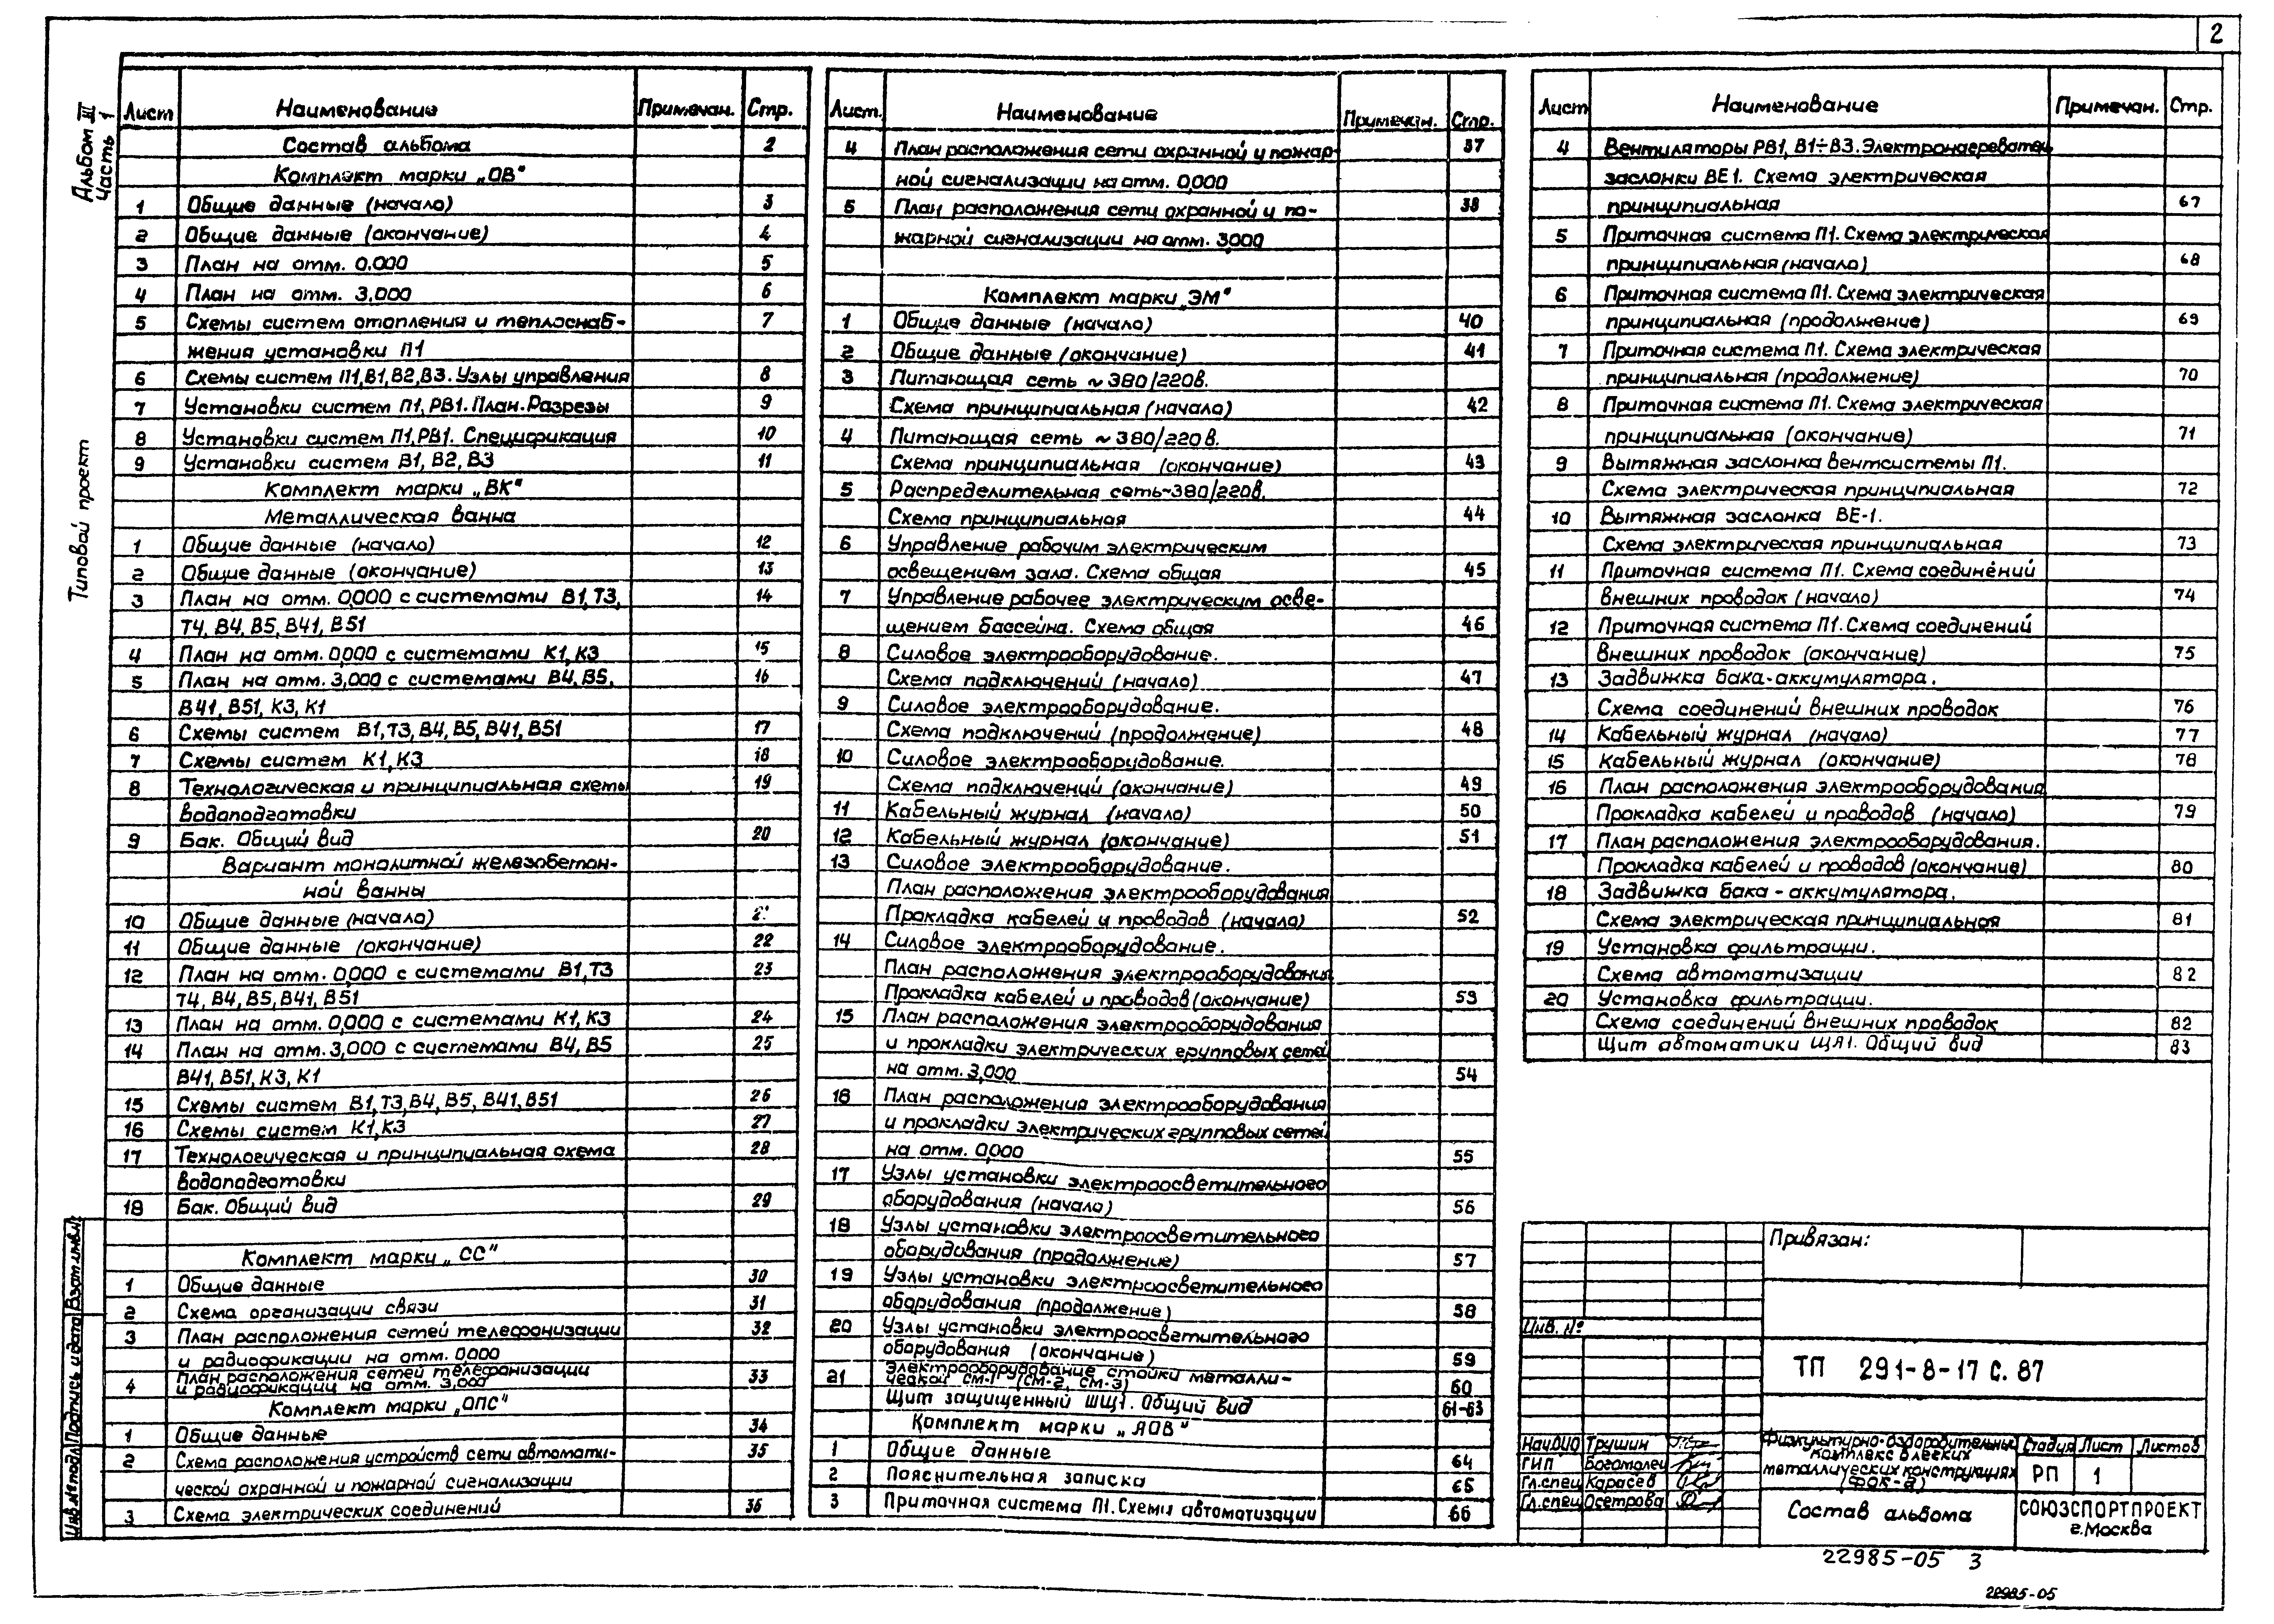 2
Альбом III
Часть 1
Типовой проект
Лист Наименование Примечан. Стр.
Состав альбома 2
Комплект марки „ОВ"
1 Общие данные (начало) 3
2 Общие данные (окончание) 4
3 План на отм. 0,000 5
4 План на отм. 3,000 6
5 Схемы систем отопления и теплоснаб- 7
жения установки П1
6 Схемы систем П1,В1,В2,В3. Узлы управления 8
7 Установки систем П1,РВ1. План. Разрезы 9
8 Установки систем П1,РВ1. Спецификация 10
9 Установки систем В1, В2, В3 11
Комплект марки „ВК"
Металлическая ванна
1 Общие данные (начало) 12
2 Общие данные (окончание) 13
3 План на отм. 0,000 с системами В1,Т3, 14
Т4, В4, В5, В41, В51
4 План на отм. 0,000 с системами К1,К3 15
5 План на отм. 3,000 с системами В4, В5, 16
В41, В51, К3, К1
6 Схемы систем В1,Т3, В4, В5, В41, В51 17
7 Схемы систем К1,К3 18
8 Технологическая и принципиальная схемы 19
водоподготовки
9 Бак. Общий вид 20
Вариант монолитной железобетон-
ной ванны
10 Общие данные (начало)
11 Общие данные (окончание) 22
12 План на отм. 0,000 с системами В1,Т3 23
Т4, В4, В5, В41, В51
13 План на отм. 0,000 с системами К1,К3 24
14 План на отм. 3,000 с системами В4, В5 25
В41, В51, К3, К1
15 Схемы систем В1,Т3,В4, В5, В41,В51 26
16 Схемы систем К1,К3 27
17 Технологическая и принципиальная схема 28
водоподготовки
18 Бак. Общий вид 29
Комплект марки „СС"
1 Общие данные 30
2 Схема организации связи 31
3 План расположения сетей телефонизации 32
и радиофикации на отм. 0,000
4 План расположения сетей телефонизации 33
и радиофикации на отм. 3,000
Комплект марки „ОПС"
1 Общие данные 34
2 Схема расположения устройств сети автомати- 35
ческой охранной и пожарной сигнализации
3 Схема электрических соединений 36
Лист. Наименование Примечан. Стр.
4 План расположения сети охранной и пожар- 37
ной сигнализации на отм. 0,000
5 План расположения сети охранной и по- 38
жарной сигнализации на отм. 3,000
Комплект марки „ЭМ"
1 Общие данные (начало) 40
2 Общие данные (окончание) 41
3 Питающая сеть ~380/220в.
Схема принципиальная (начало) 42
4 Питающая сеть ~380/220в.
Схема принципиальная (окончание) 43
5 Распределительная сеть~380/220в.
Схема принципиальная 44
6 Управление рабочим электрическим
освещением зала. Схема общая 45
7 Управление рабочее электрическим осве-
щением бассейна. Схема общая 46
8 Силовое электрооборудование.
Схема подключений (начало) 47
9 Силовое электрооборудование.
Схема подключений (продолжение) 48
10 Силовое электрооборудование.
Схема подключений (окончание) 49
11 Кабельный журнал (начало) 50
12 Кабельный журнал (окончание) 51
13 Силовое электрооборудование.
План расположения электрооборудования
Прокладка кабелей и проводов (начало) 52
14 Силовое электрооборудование.
План расположения электрооборудования
Прокладка кабелей и проводов (окончание) 53
15 План расположения электрооборудования
и прокладки электрических групповых сетей
на отм. 3,000 54
16 План расположения электрооборудования
и прокладки электрических групповых сетей
на отм. 0,000 55
17 Узлы установки электроосветительного
оборудования (начало) 56
18 Узлы установки электроосветительного
оборудования (продолжение) 57
19 Узлы установки электроосветительного
оборудования (продолжение) 58
20 Узлы установки электроосветительного
оборудования (окончание) 59
21 Электрооборудование стойки металли-
ческой СМ-1 (СМ-2, СМ-3) 60
Щит защищенный ШЩ1. Общий вид 61-63
Комплект марки „АОВ"
1 Общие данные 64
2 Пояснительная записка 65
3 Приточная система П1. Схема автоматизации 66
Лист Наименование Примечан. Стр.
4 Вентиляторы РВ1, В1÷В3. Электронагреватель
заслонки ВЕ1. Схема электрическая
принципиальная 67
5 Приточная система П1. Схема электрическая
принципиальная (начало) 68
6 Приточная система П1. Схема электрическая
принципиальная (продолжение) 69
7 Приточная система П1. Схема электрическая
принципиальная (продолжение) 70
8 Приточная система П1. Схема электрическая
принципиальная (окончание) 71
9 Вытяжная заслонка вентсистемы П1.
Схема электрическая принципиальная 72
10 Вытяжная заслонка ВЕ-1.
Схема электрическая принципиальная 73
11 Приточная система П1. Схема соединений
внешних проводок (начало) 74
12 Приточная система П1. Схема соединений
внешних проводок (окончание) 75
13 Задвижка бака-аккумулятора.
Схема соединений внешних проводок 76
14 Кабельный журнал (начало) 77
15 Кабельный журнал (окончание) 78
16 План расположения электрооборудования
Прокладка кабелей и проводов (начало) 79
17 План расположения электрооборудования.
Прокладка кабелей и проводов (окончание) 80
18 Задвижка бака-аккумулятора.
Схема электрическая принципиальная 81
19 Установка фильтрации.
Схема автоматизации 82
20 Установка фильтрации.
Схема соединений внешних проводок 82
Щит автоматики ЩЯ1. Общий вид 83
Привязан:
Инв. №
ТП 291-8-17 С. 87
Нач.ОИО Трушин
ГИП Богомолец
Гл.спец Карасев
Гл.спец Осетрова
Физкультурно-оздоровительный
комплекс в легких
металлических конструкциях
(ФОК-2)
Стадия Лист Листов
РП 1
Состав альбома
СОЮЗСПОРТПРОЕКТ
г. Москва
Инв.№подл. Подпись и дата Взам.инв.№
22985-05 3
22985-05